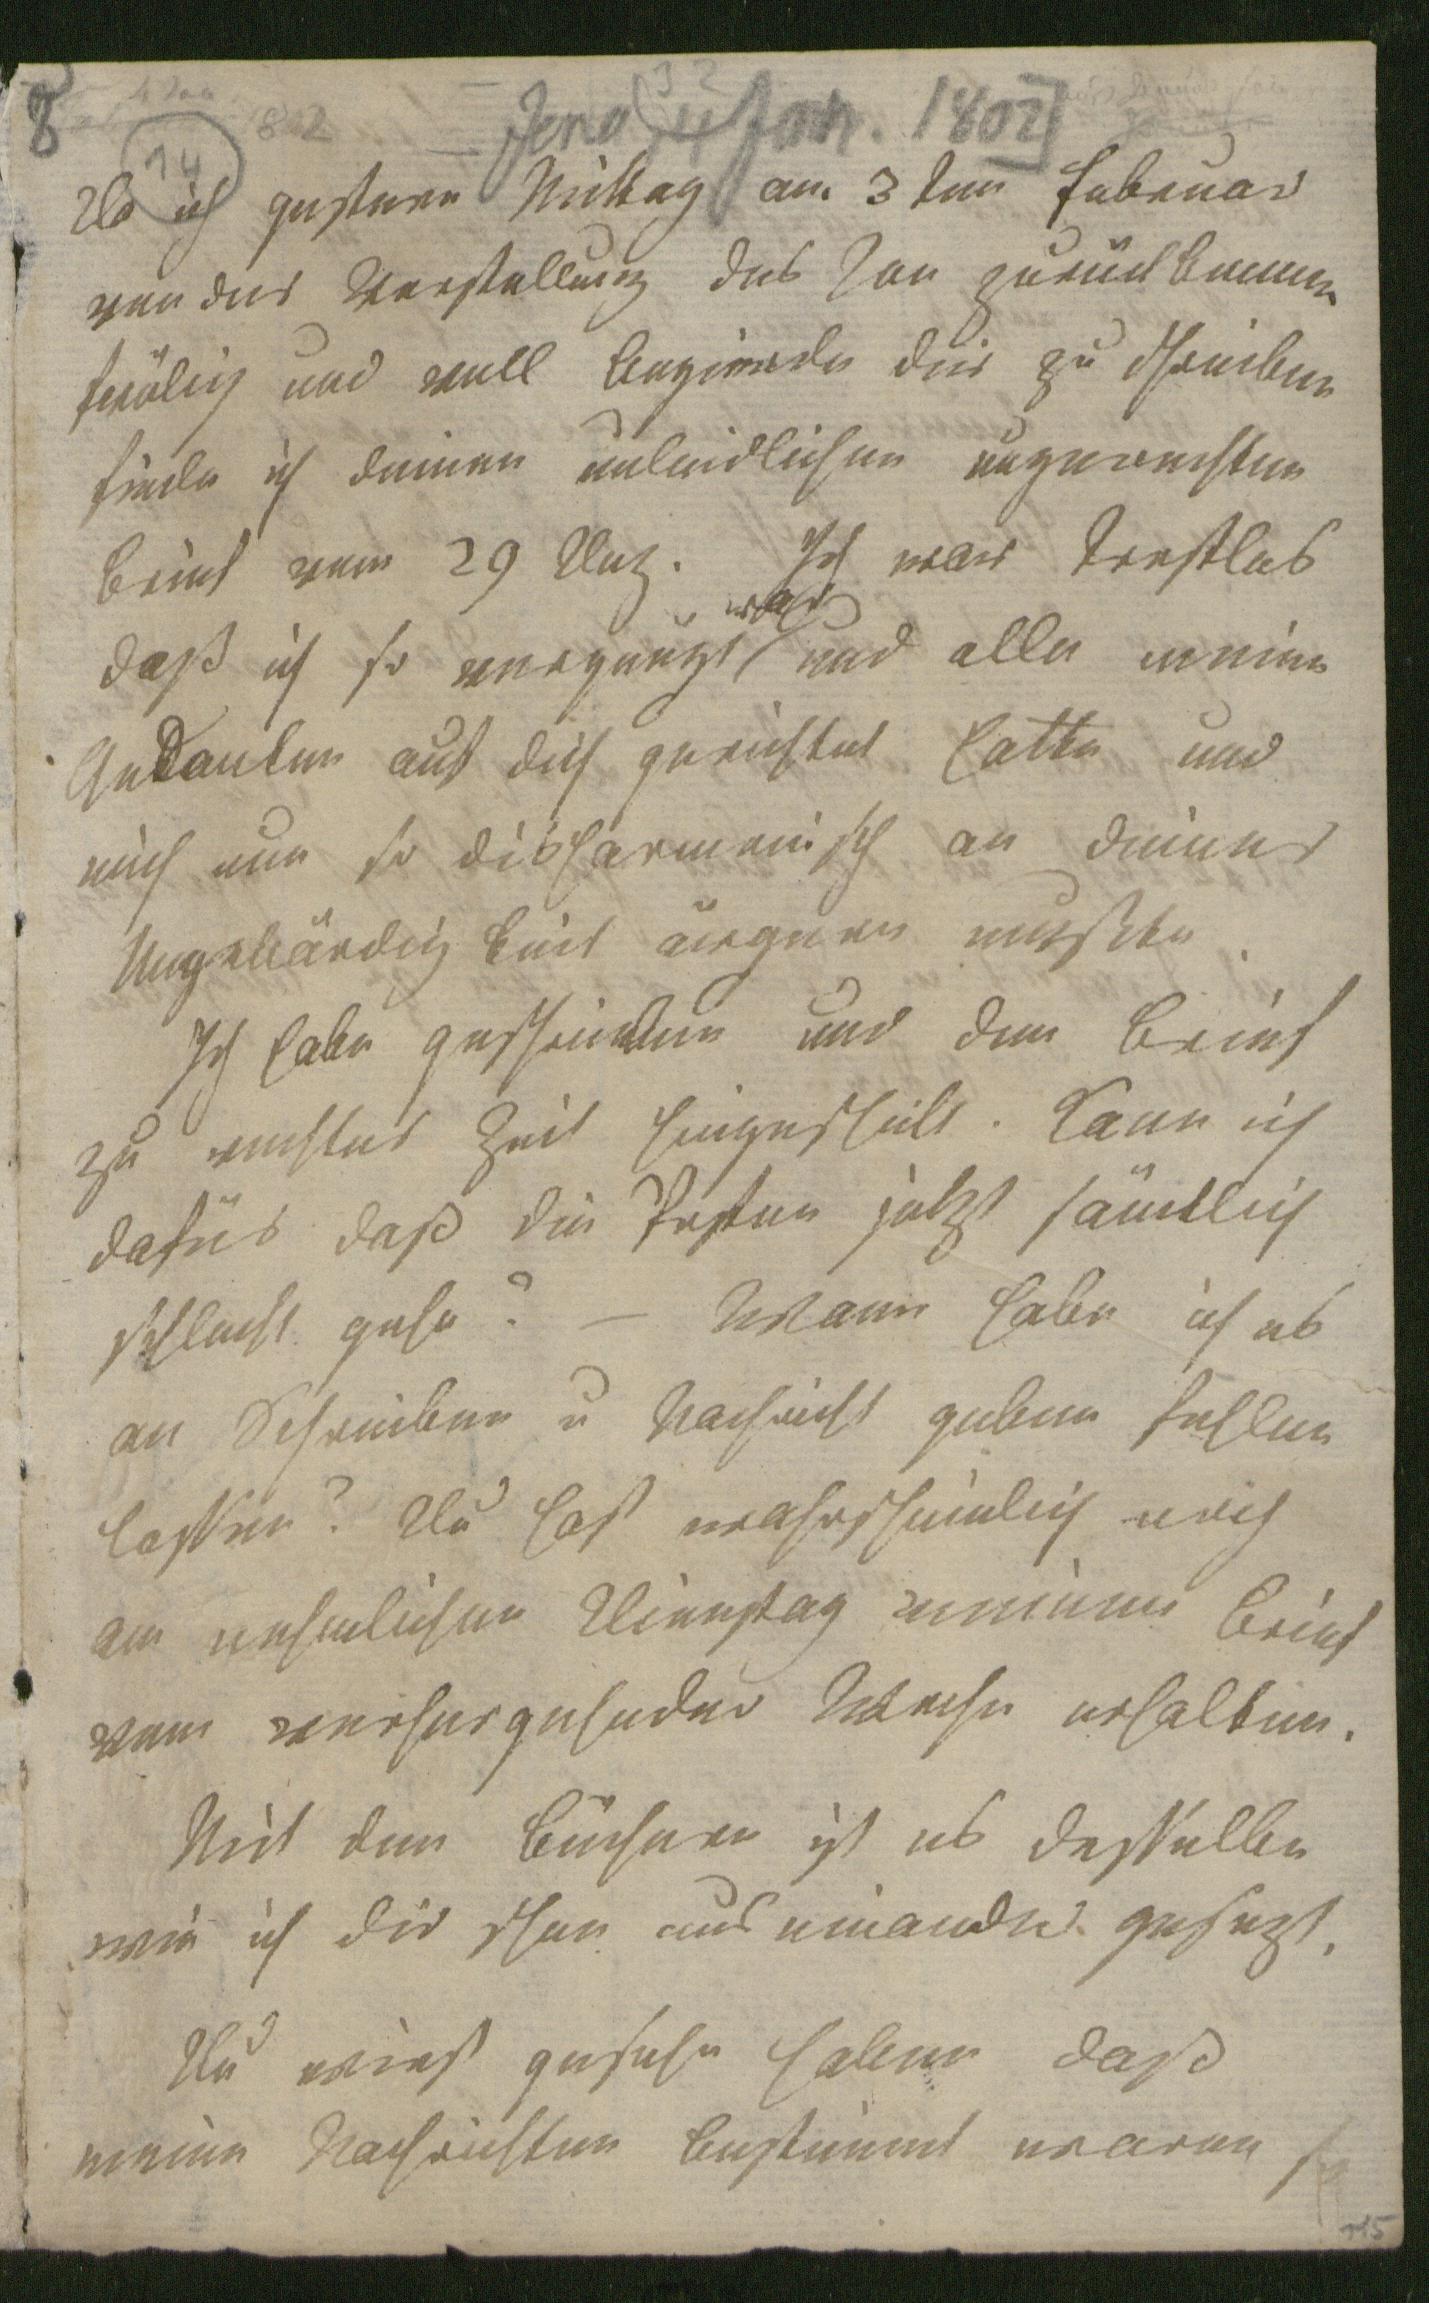 8
14
Jena 4 Jan. 1802]
Da ich gestern Mittag am 3 ten Februar
von der Vorstellung des Ion zurück komme
frölich und voll Begierde dir zu schreiben
finde ich deinen unleidlichen ungerechten
Brief vom 29 Dez. Ich war trostlos
daß ich so vergnügt war und alle meine
Gedanken auf dich gerichtet hatte und
mich nun so disharmonisch an deiner
Ungebärdigkeit ärgern mußte.
Ich habe geschrieben und den Brief
zu rechter Zeit hingeschickt. Kann ich
dafür daß die Posten jetzt sämtlich
schlecht gehn? – Wann habe ich es
an Schreiben u Nachricht geben fehlen
lassen? Du hast wahrscheinlich noch
am nehmlichen Dienstag meinen Brief
von vorhergehender Woche erhalten.
Mit den Büchern ist es dasselbe
wie ich dir schon auseinander gesezt.
Du wirst gesehn haben daß
meine Nachrichten bestimmt waren so
115